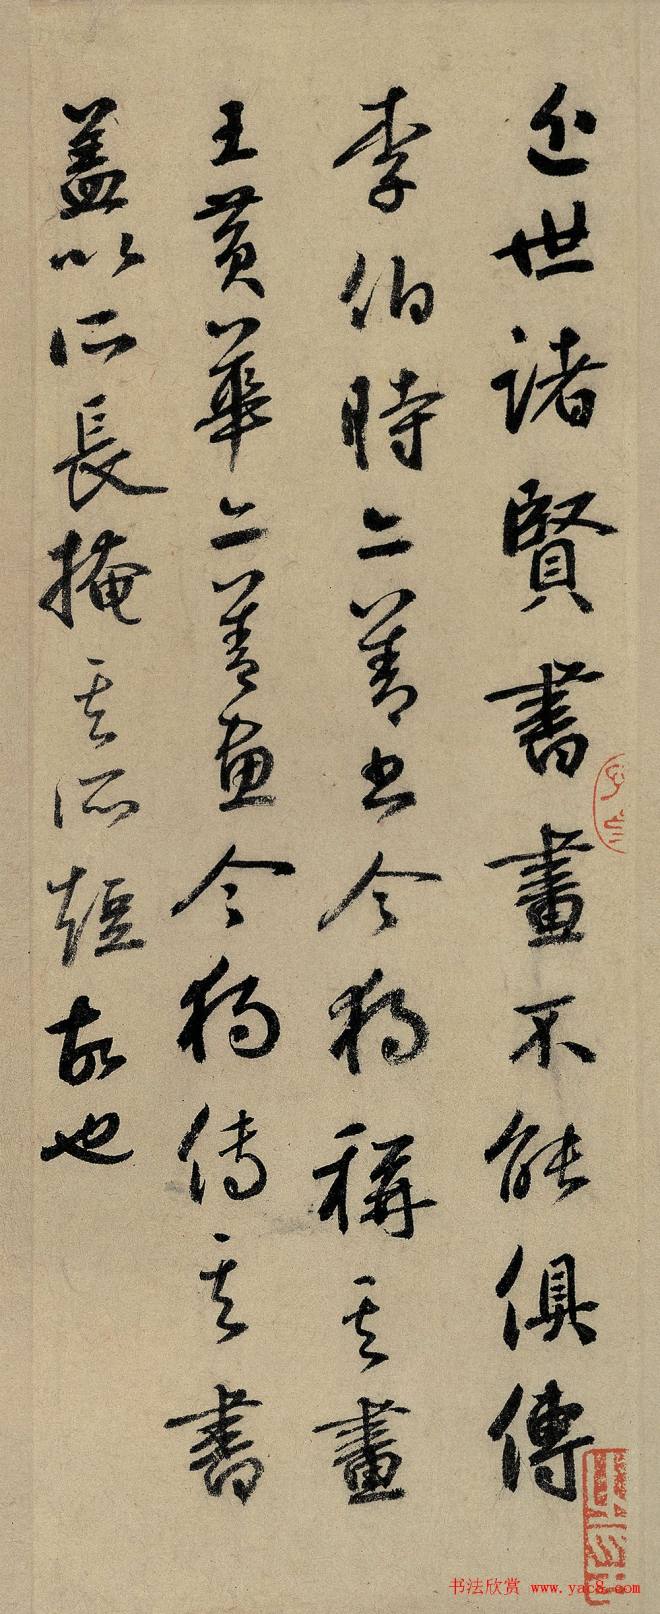 近世諸賢書畫不能俱傳
李伯時亦善书今獨稱其畫
王黃華亦善画今獨傳其書
蓋以所長掩其所短故也
书法欣赏 www.yac8.com